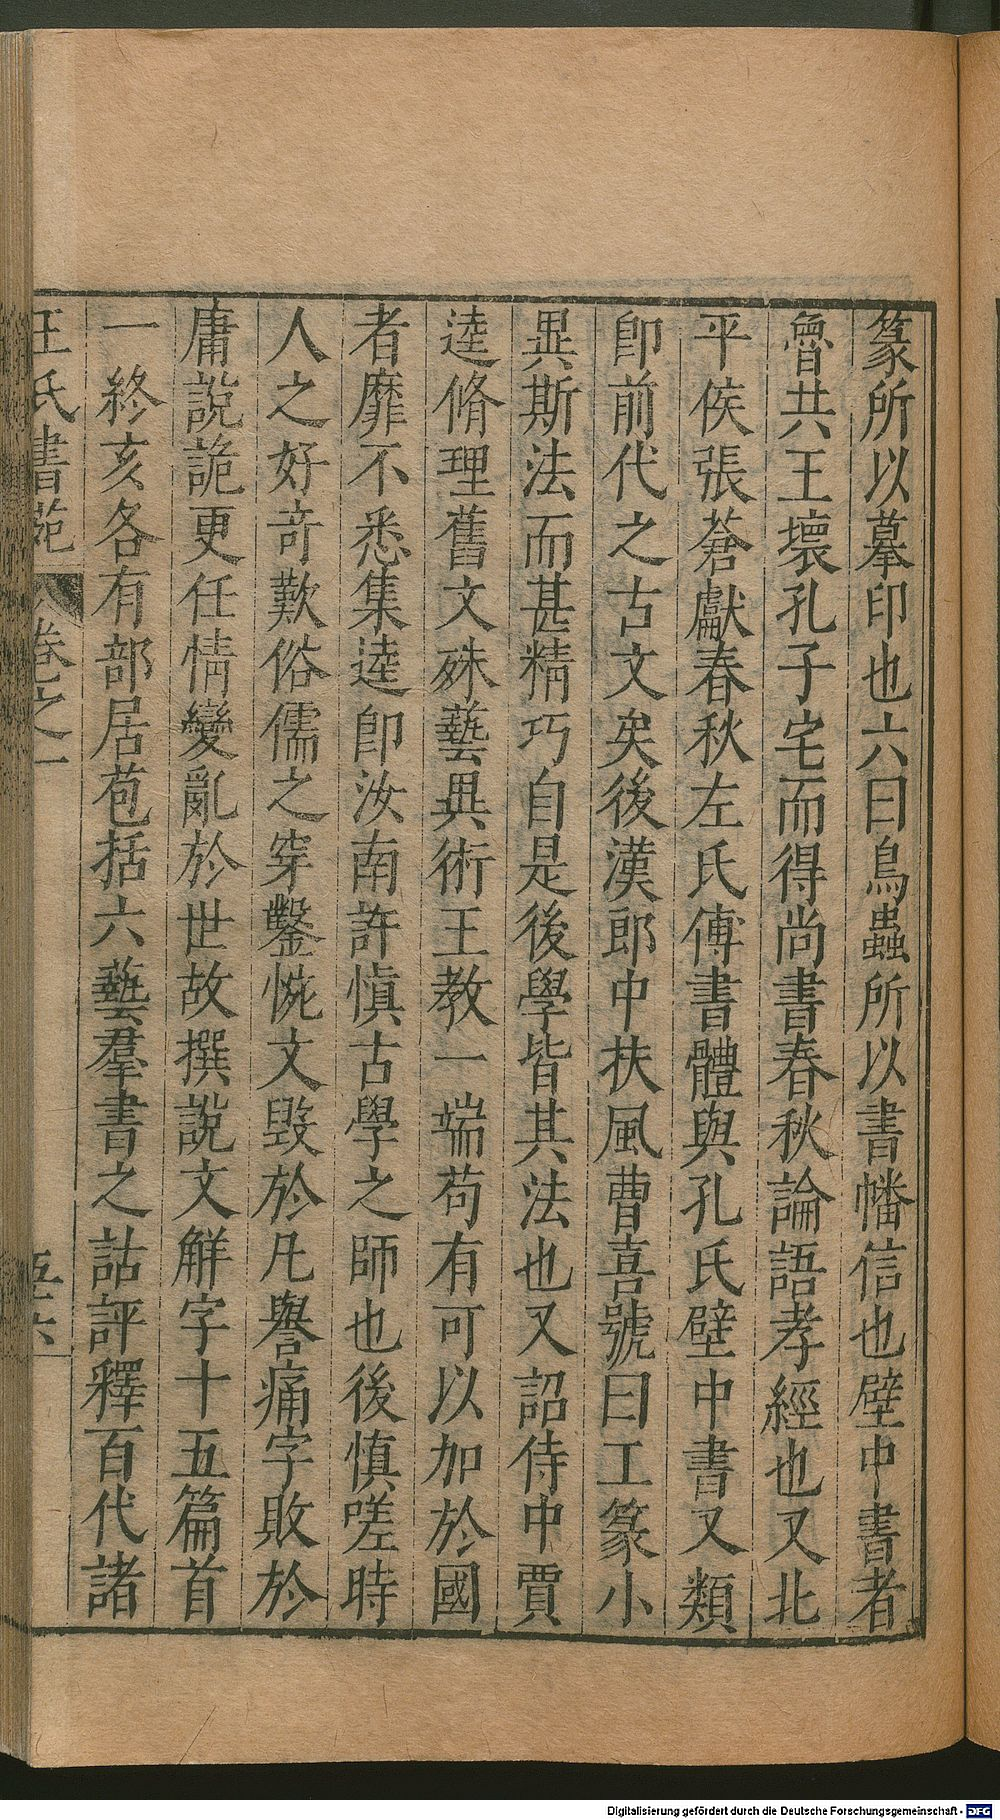 篆所以摹印也六曰鳥蟲所以書幡信也壁中書者
魯共王壞孔子宅而得尚書春秋論語孝經也又北
平侯張蒼獻春秋左氏傳書體與孔氏壁中書又類
卽前代之古文矣後漢郎中扶風曹喜號曰工篆小
異斯法而甚精巧自是後學皆其法也又詔侍中賈
逵脩理舊文殊藝異術王教一端苟有可以加於國
者靡不悉集逵卽汝南許慎古學之師也後慎嗟時
人之好奇歎俗儒之穿鑿惋文毀於凡譽痛字敗於
庸說詭更任情變亂於世故撰說文解字十五篇首
一終亥各有部居苞括六藝羣書之詁評釋百代諸
王氏書苑 卷之一 五十六
Digitalisierung gefördert durch die Deutsche Forschungsgemeinschaft - DFG